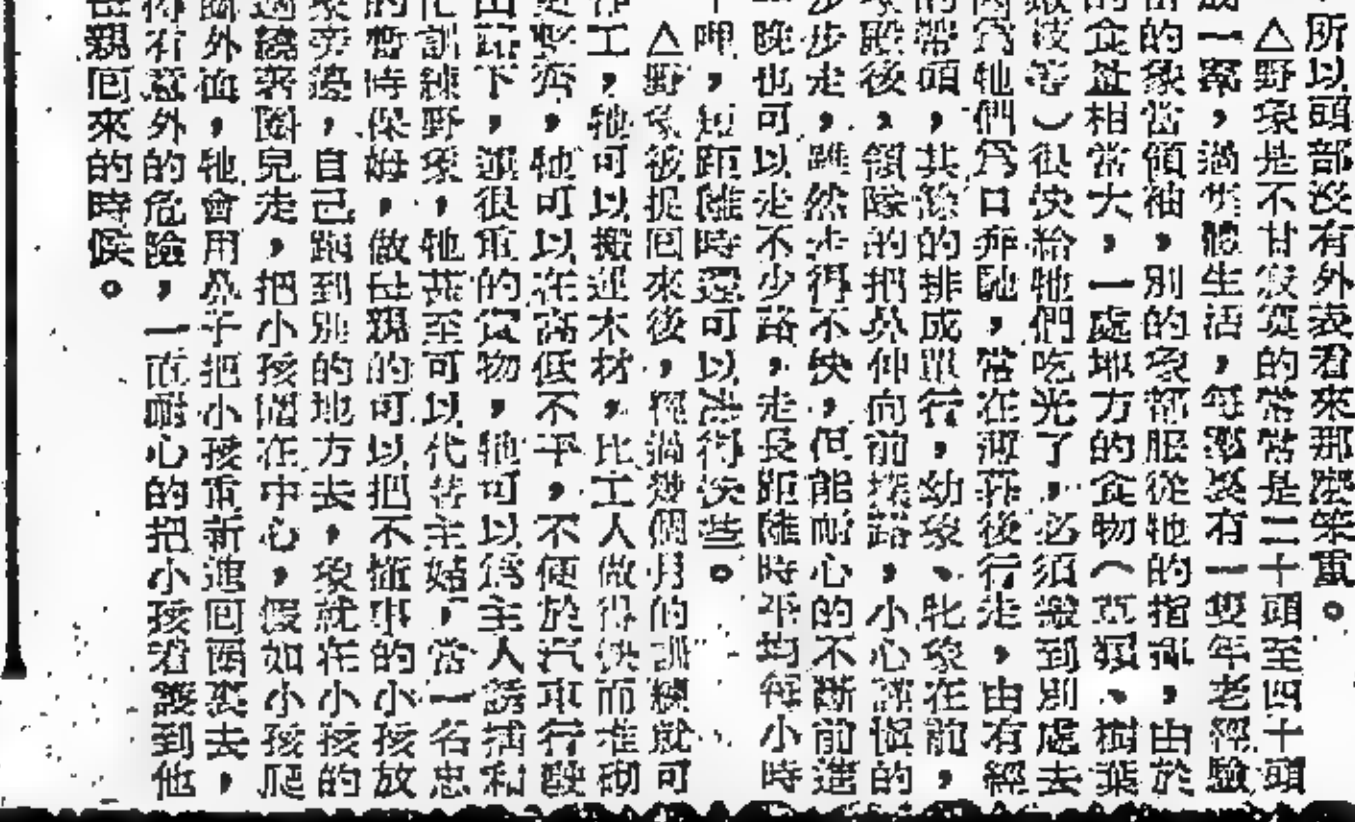 所以頭部沒有外表看來那麼笨重。
△野象是不甘寂寞的常常是二十頭至四十頭
成一羣，過集體生活，每羣裏有一隻年老經驗
的象當領袖，別的象都服從牠的指揮，由於
的食量相當大，一處地方的食物（草類、樹葉
等）很快給牠們吃光了，必須搬到別處去
牠們爲口奔馳，常在薄暮後行走，由有經
的帶頭，其餘的排成單行，幼象、牝象在前，
殿後，領隊的把鼻伸向前探路，小心謹慎的
步步走，雖然走得不快，但能耐心的不斷前進
晚也可以走不少路，走長距離時平均每小時
呷，短距離時還可以走得快些。
△野象被捉囘來後，經過幾個月的訓練就可
工，牠可以搬運木材，比工人做得快而堆砌
齊，牠可以在高低不平，不便於汽車行駛
下，運很重的貨物，牠可以爲主人誘捕和
訓練野象，牠甚至可以代替主婦，當一名忠
的暫時保姆，做母親的可以把不懂事的小孩放
象旁邊，自己跑到別的地方去，象就在小孩的
繞著圈兒走，把小孩留在中心，假如小孩爬
圈外面，牠會用鼻子把小孩重新送囘圈裏去，
有意外的危險，一直耐心的把小孩看護到他
親囘來的時候。